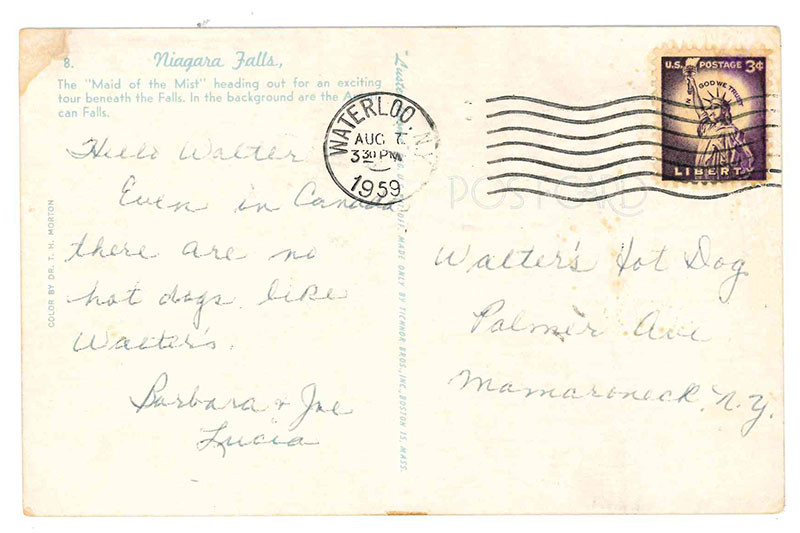 8. Niagara Falls,
The "Maid of the Mist" heading out for an exciting
tour beneath the Falls. In the background are the
can Falls.
Hello Walter
Even in Canada
there are no
hot dogs like
Walter's.
Barbara & Joe
Lucia
COLOR BY DR. T. H. MORTON
MADE ONLY BY TICHNOR BROS., INC., BOSTON 15, MASS.
WATERLOO, N.Y.
AUG
3 30 PM
1959
U.S. POSTAGE 3¢
IN GOD WE TRUST
LIBERTY
POST CARD
Walter's Hot Dog
Palmer Ave
Mamaroneck, N.Y.